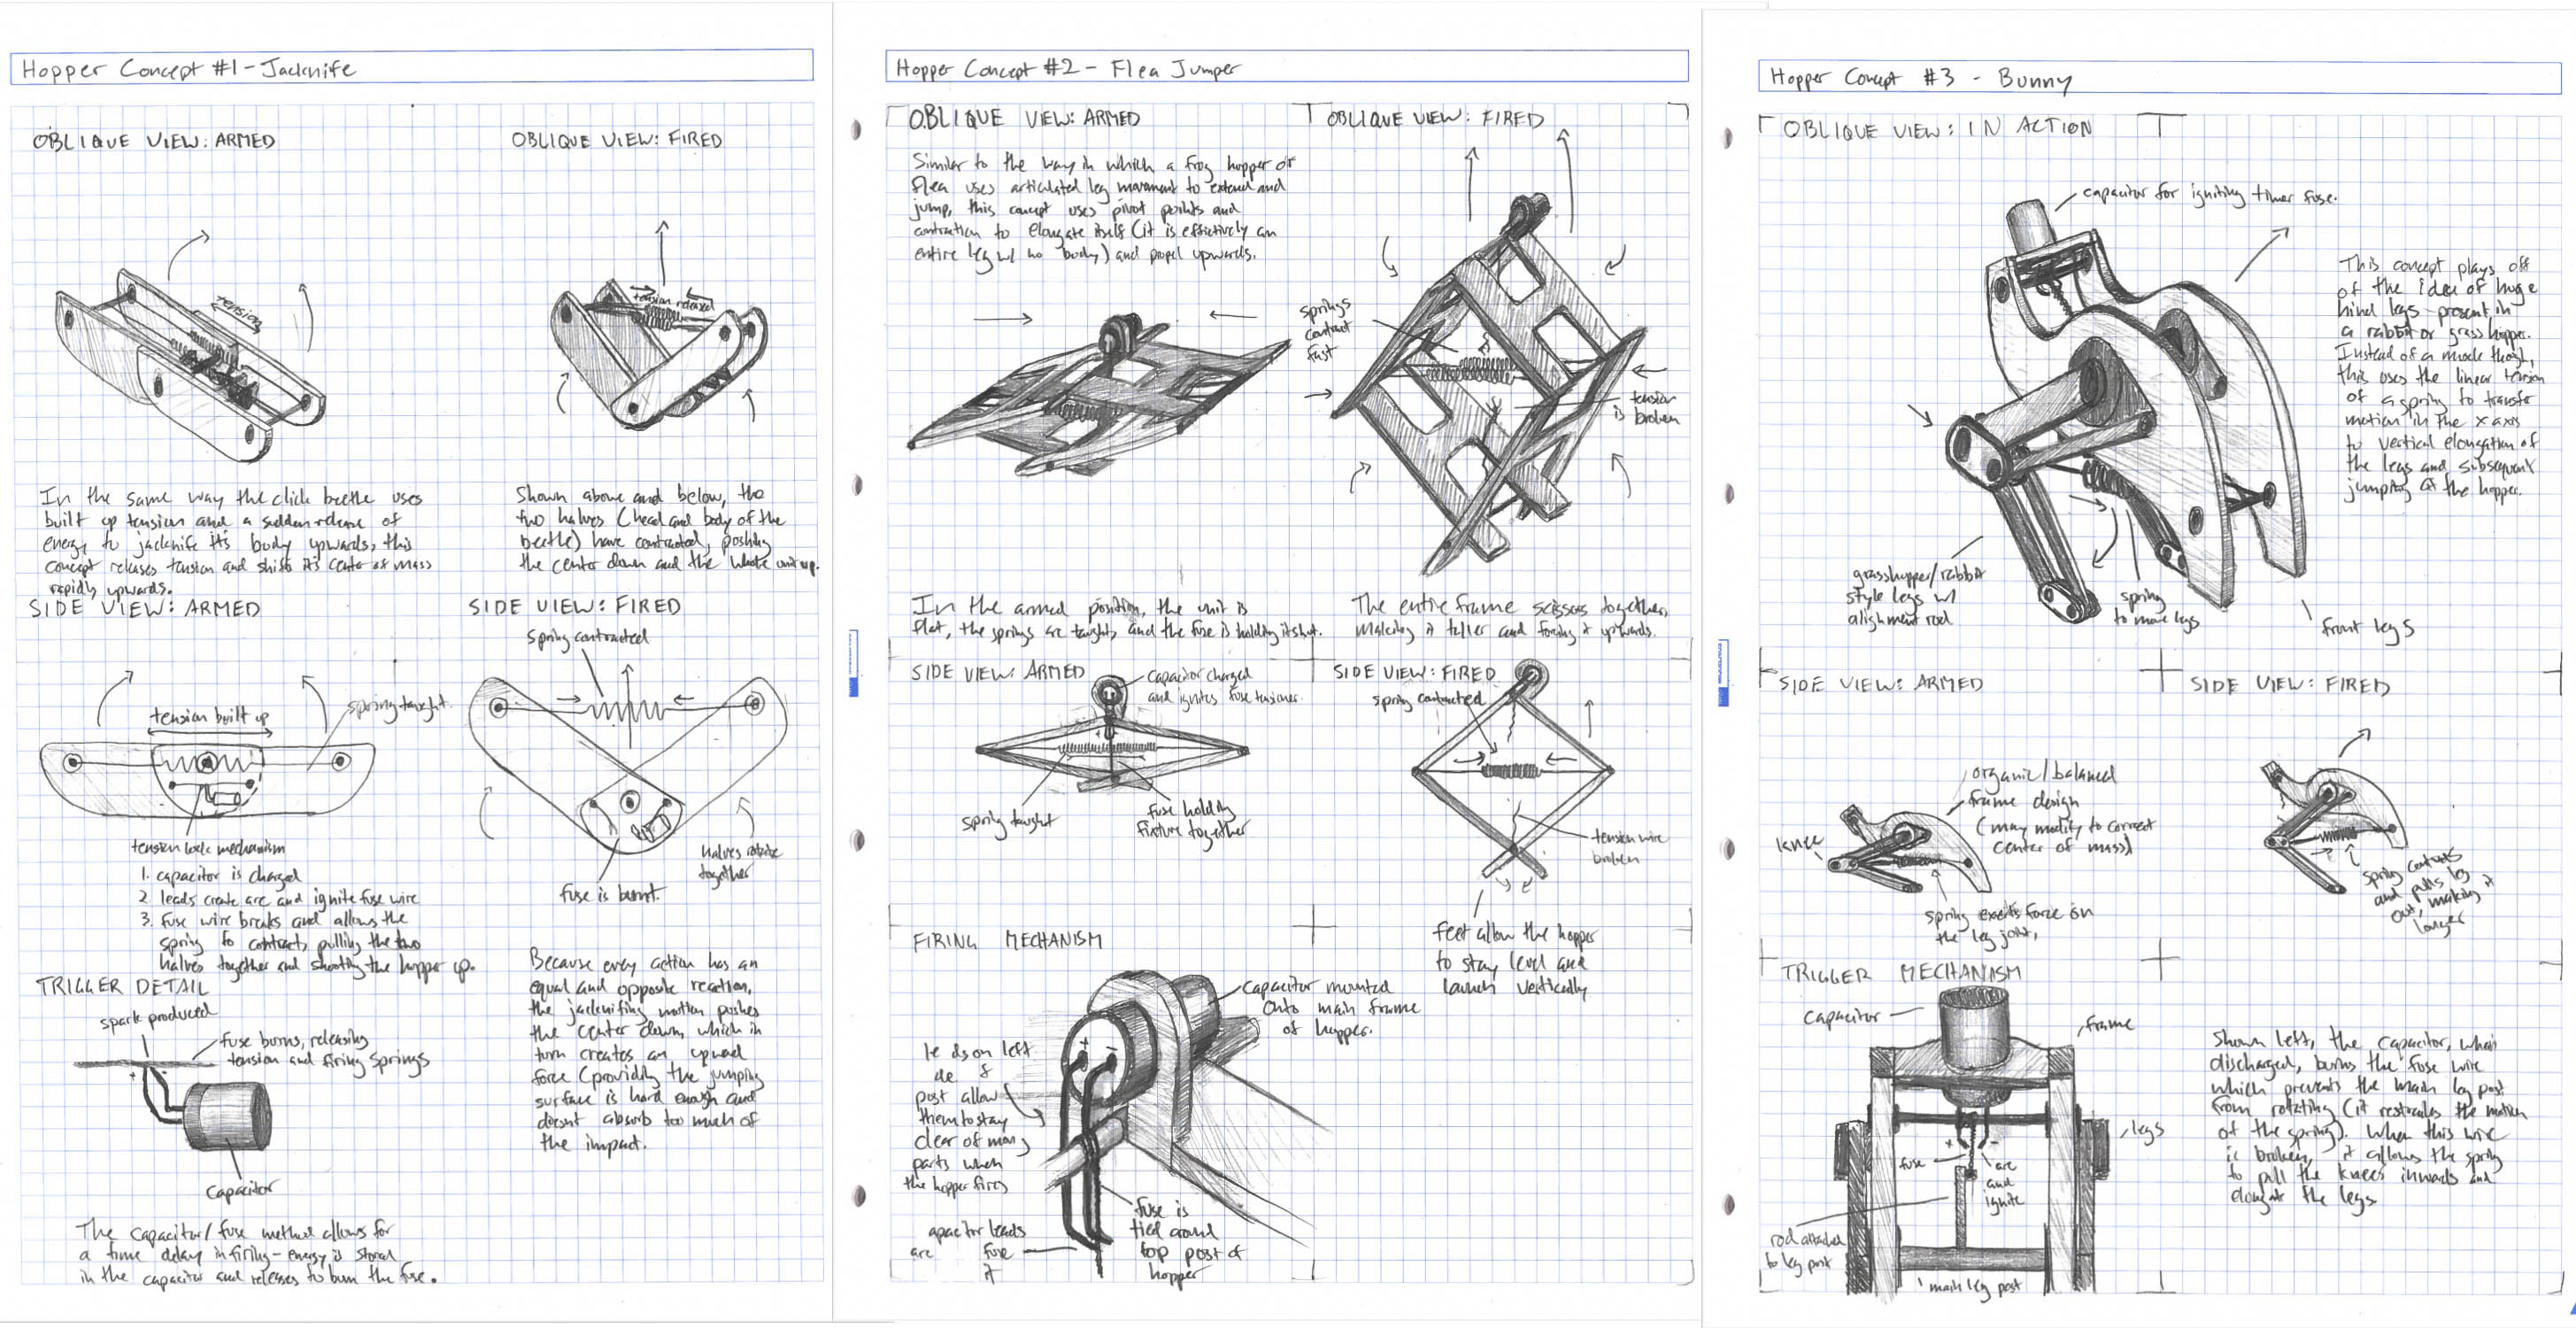 Hopper Concept #1 - Jacknife
OBLIQUE VIEW: ARMED
tension
In the same way the click beetle uses
built up tension and a sudden release of
energy to jacknife its body upwards, this
concept releases tension and shifts its center of mass
rapidly upwards.
OBLIQUE VIEW: FIRED
tension released
Shown above and below, the
two halves (head and body of the
beetle) have contracted, pushing
the center down and the whole unit up.
SIDE VIEW: ARMED
tension built up
spring taught
tension lock mechanism
1. capacitor is charged
2. leads create arc and ignite fuse wire
3. fuse wire breaks and allows the
spring to contract, pulling the two
halves together and shooting the hopper up.
SIDE VIEW: FIRED
spring contracted
fuse is burnt.
halves rotate
together
TRIGGER DETAIL
spark produced
fuse burns, releasing
tension and firing springs
+
capacitor
Because every action has an
equal and opposite reaction,
the jacknifing motion pushes
the center down, which in
turn creates an upward
force (providing the jumping
surface is hard enough and
doesnt absorb too much of
the impact.
The capacitor/fuse method allows for
a time delay in firing - energy is stored
in the capacitor and releases to burn the fuse.
Hopper Concept #2 - Flea Jumper
OBLIQUE VIEW: ARMED
Similar to the way in which a frog hopper or
flea uses articulated leg movement to extend and
jump, this concept uses pivot points and
contraction to elongate itself (it is effictively an
entire leg w/ no body) and propel upwards.
OBLIQUE VIEW: FIRED
springs
contract
fast
tension
is broken
In the armed position, the unit is
flat, the springs are taught, and the fuse is holding it shut.
The entire frame scissors together,
making it taller and forcing it upwards.
SIDE VIEW: ARMED
capacitor charged
and ignites fuse
spring taught
fuse holding
fixture together
SIDE VIEW: FIRED
spring contracted
tension wire
broken
feet allow the hopper
to stay level and
launch vertically
FIRING MECHANISM
capacitor mounted
onto main frame
of hopper.
+ -
leds on left
de of
post allow
them to stay
clear of moving
parts when
the hopper fires
apacitor leads
are fuse
it
fuse is
tied around
top post of
hopper
Hopper Concept #3 - Bunny
OBLIQUE VIEW: IN ACTION
capacitor for igniting timer fuse.
This concept plays off
of the idea of huge
hind legs present in
a rabbit or grasshopper.
Instead of a muscle though,
this uses the linear tension
of a spring to transfer
motion in the x axis
to vertical elongation of
the legs and subsequent
jumping of the hopper.
grasshopper/rabbit
style legs w/
alignment rod
spring
to move legs
front legs
SIDE VIEW: ARMED
organic/balanced
frame design
(may modify to correct
center of mass)
knee
spring exerts force on
the leg joint,
SIDE VIEW: FIRED
spring contracts
and pulls leg
out, making it
longer
TRIGGER MECHANISM
capacitor
frame
legs
+ -
fuse
arc
and
ignite
rod attached
to leg post
main leg post
Shown left, the capacitor, when
discharged, burns the fuse wire
which prevents the main leg post
from rotating (it restrains the motion
of the spring). When this wire
is broken, it allows the spring
to pull the knees inwards and
elongate the legs